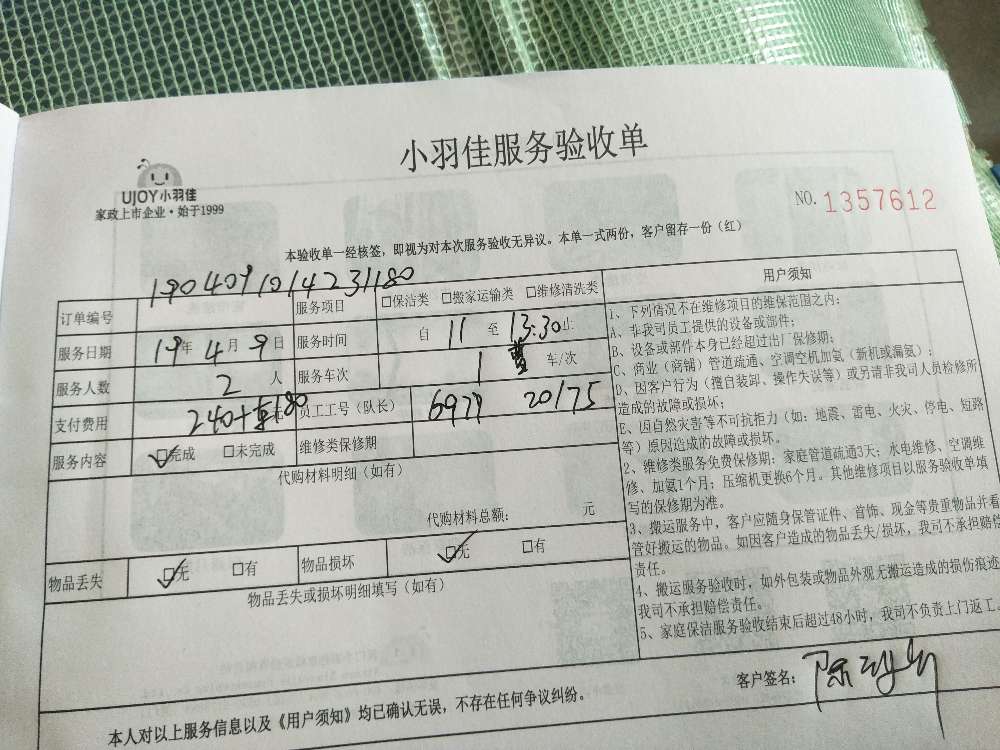 小羽佳服务验收单
UJOY小羽佳
家政上市企业·始于1999
NO. 1357612
本验收单一经核签，即视为对本次服务验收无异议。本单一式两份，客户留存一份（红）
订单编号 1904091014231180 服务项目 □保洁类 □搬家运输类 □维修清洗类
服务日期 19年4月9日 服务时间 自 11 至 13:30止
服务人数 2 人 服务车次 1 车/次
支付费用 240+车180 员工工号（队长） 6979 20175
服务内容 ☑完成 □未完成 维修类保修期
代购材料明细（如有）
代购材料总额： 元
物品丢失 ☑无 □有 物品损坏 ☑无 □有
物品丢失或损坏明细填写（如有）
用户须知
1、下列情况不在维修项目的维保范围之内：
A、非我司员工提供的设备或部件；
B、设备或部件本身已经超过出厂保修期；
C、商业（商铺）管道疏通、空调空机加氨（新机或漏氨）；
D、因客户行为（擅自装卸、操作失误等）或另请非我司人员检修所
造成的故障或损坏；
E、因自然灾害等不可抗拒力（如：地震、雷电、火灾、停电、短路
等）原因造成的故障或损坏。
2、维修类服务免费保修期：家庭管道疏通3天；水电维修、空调维
修、加氨1个月；压缩机更换6个月。其他维修项目以服务验收单填
写的保修期为准。
3、搬运服务中，客户应随身保管证件、首饰、现金等贵重物品并看
管好搬运的物品。如因客户造成的物品丢失/损坏，我司不承担赔偿
责任。
4、搬运服务验收时，如外包装或物品外观无搬运造成的损伤痕迹
我司不承担赔偿责任。
5、家庭保洁服务验收结束后超过48小时，我司不负责上门返工。
客户签名：
本人对以上服务信息以及《用户须知》均已确认无误，不存在任何争议纠纷。